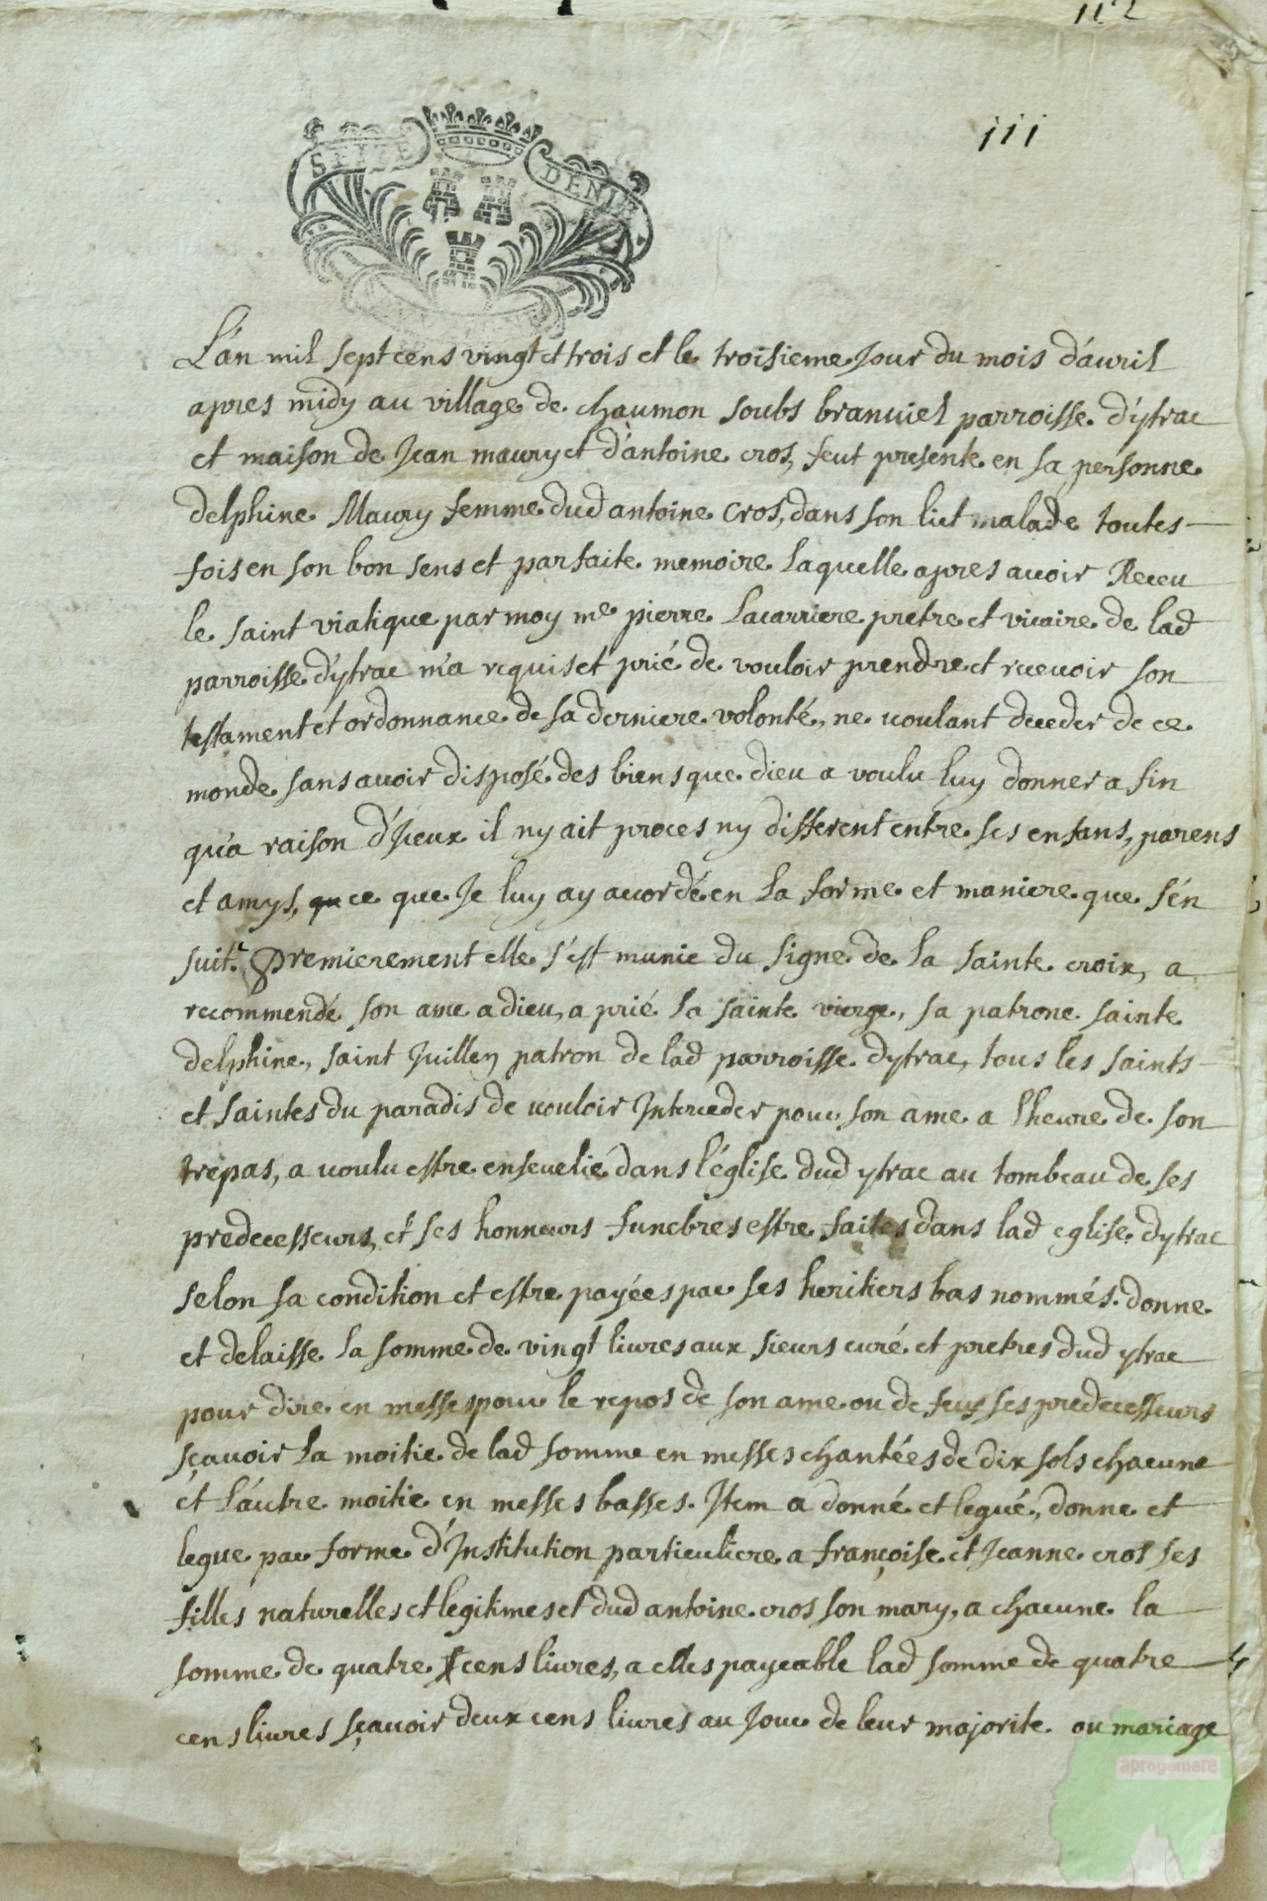 112
111
SEIZE DENIE
L'an mil sept cens vingt et trois et le troisieme Jour du mois d'auril
apres midy au village de chaumon soubs branuiel parroisse d'ytrac
et maison de Jean maury et d'antoine cros, feut presente en sa personne
delphine Maury femme dud antoine Cros, dans son lict malade toutes
fois en son bon sens et parfaite memoire laquelle apres auoir Receu
le saint viatique par moy me pierre Lacarriere pretre et vicaire de lad
parroisse d'ytrac m'a requis et prié de vouloir prendre et receuoir son
testament et ordonnance de sa derniere volonté, ne voulant deceder de ce
monde sans auoir disposé des biens que dieu a voulu luy donner a fin
qu'a raison d'Jceux il ny ait proces ny different entre ses enfans, parens
et amys, ce que Je luy ay acordé en la forme et maniere que s'en
suit. Premierement elle s'est munie du signe de la sainte croix, a
recommendé son ame a dieu, a prié la sainte vierge, sa patrone sainte
delphine, saint Juillen patron de lad parroisse dytrac, tous les saints
et saintes du paradis de vouloir Jnterceder pour son ame a lheure de son
trepas, a voulu estre enseuelie dans l'église dud ytrac au tombeau de ses
predecesseurs, et ses honneurs funebres estre faites dans lad eglise dytrac
selon sa condition et estre payées par ses heritiers bas nommés. donne
et delaisse la somme de vingt liures aux sieurs curé et pretres dud ytrac
pour dire en messes pour le repos de son ame ou de feus ses predecesseurs
sçauoir la moitie de lad somme en messes chantées de dix sols chacune
et l'autre moitie en messes basses. Jtem a donné et legué, donne et
legue par forme d'Jnstitution particuliere a françoise et Jeanne cros ses
filles naturelles et legitimes et dud antoine cros son mary, a chacune la
somme de quatre cens liures, a elles payeable lad somme de quatre
cens liures sçauoir deux cens liures au Jour de leur majorite ou mariage
aprogemere